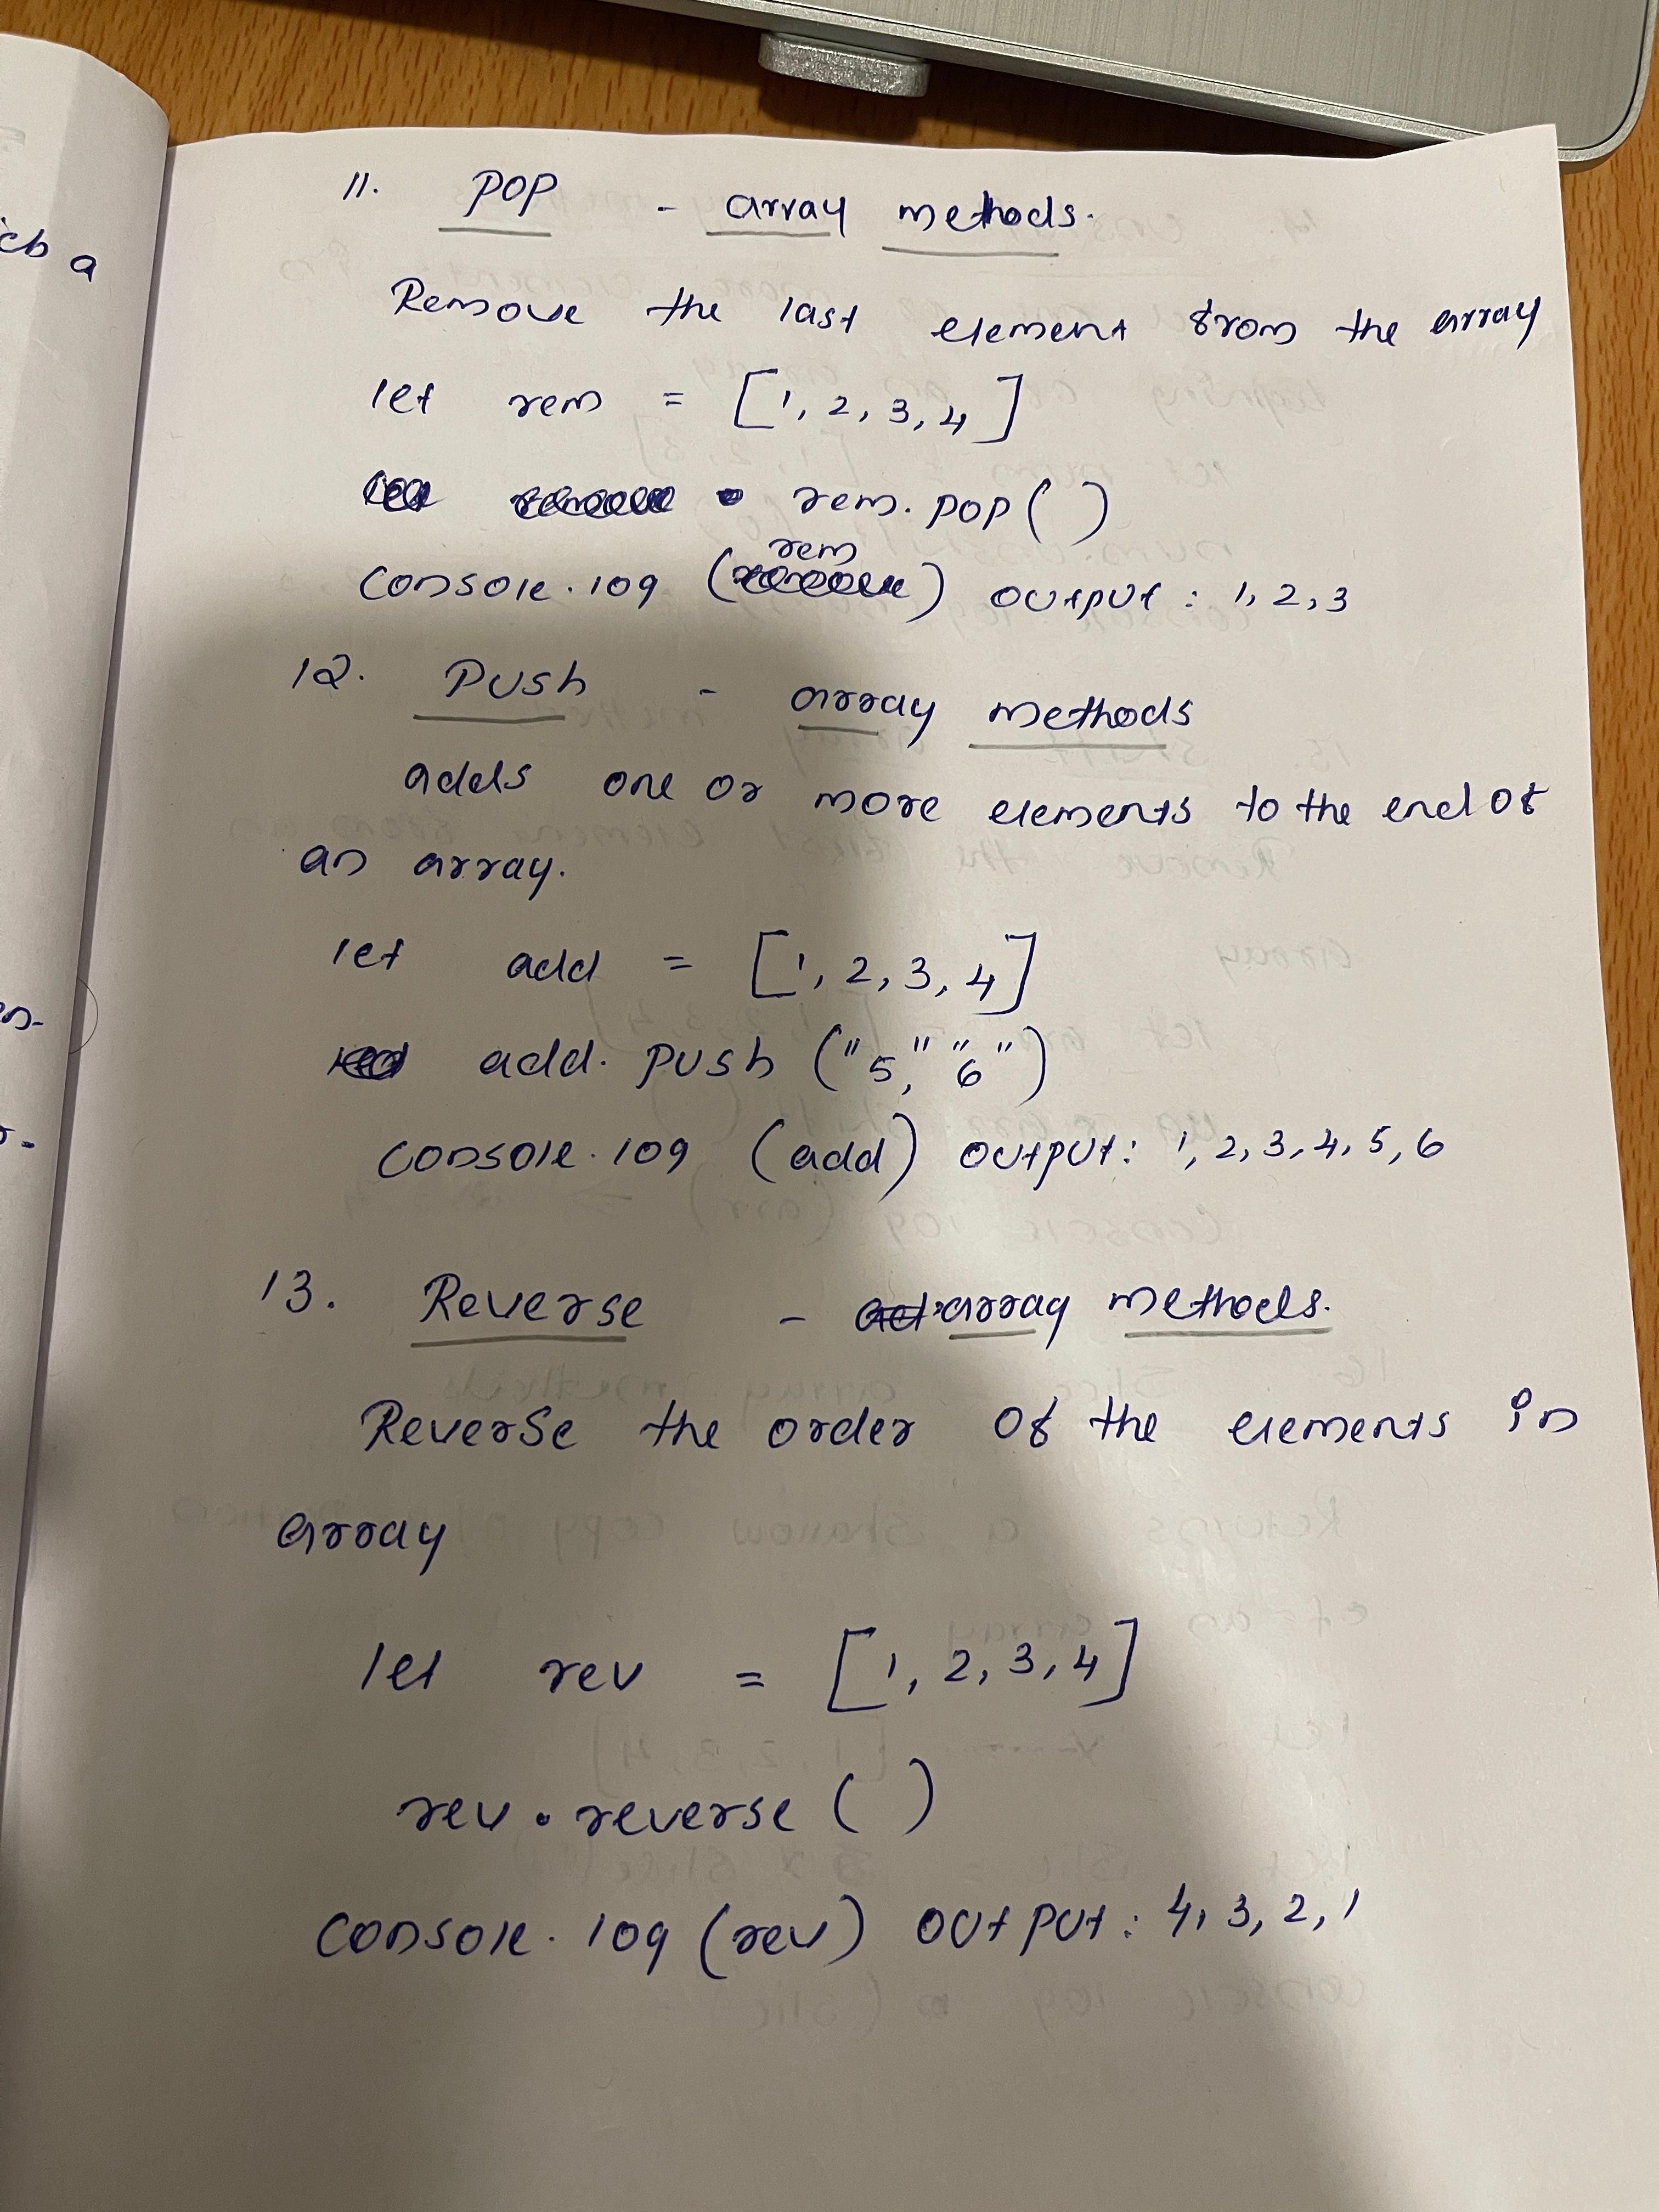 11. POP - array methods.
Remove the last element from the array
let rem = [1, 2, 3, 4]
rem. pop ( )
console. log (rem) output : 1, 2, 3
12. Push - array methods
adds one or more elements to the end of
an array.
let add = [1, 2, 3, 4]
add. push ("5," "6")
console. log (add) output: 1, 2, 3, 4, 5, 6
13. Reverse - array methods.
Reverse the order of the elements in
array
let rev = [1, 2, 3, 4]
rev . reverse ( )
console. log (rev) output: 4, 3, 2, 1
a